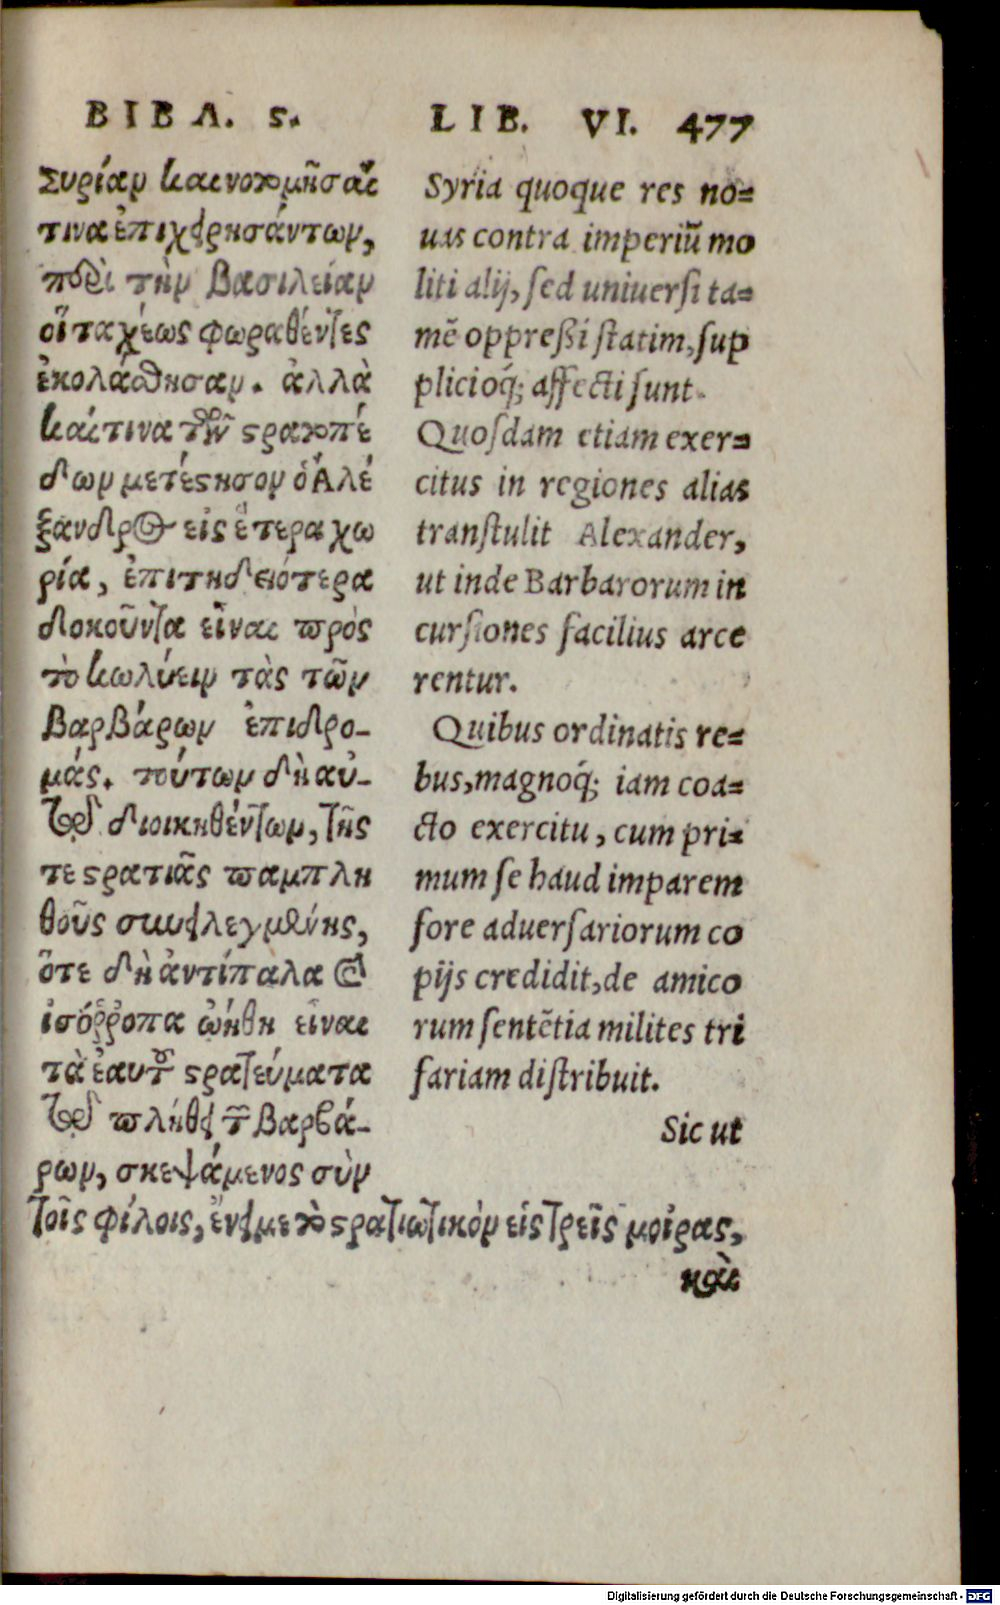 ΒΙΒΛ. ϛ.
Συρίαν καινοτομῆσαί
τινα ἐπιχειρησάντων,
περὶ τὴν βασιλείαν
οἳ ταχέως φωραθέντες
ἐκολάσθησαν. ἀλλὰ
καί τινα τῶν στρατοπέ
δων μετέστησεν ὁ Ἀλέ
ξανδρος εἰς ἕτερα χω
ρία, ἐπιτηδειότερα
δοκοῦντα εἶναι πρὸς
τὸ κωλύειν τὰς τῶν
Βαρβάρων ἐπιδρο-
μάς. τούτων δὴ αὐ-
τῷ διοικηθέντων, τῆς
τε στρατιᾶς παμπλη
θοῦς συνειλεγμένης,
ὅτε δὴ ἀντίπαλα καὶ
ἰσόῤῥοπα ᾠήθη εἶναι
τὰ ἑαυτοῦ στρατεύματα
τῷ πλήθει τῶν Βαρβά-
ρων, σκεψάμενος σὺν
τοῖς φίλοις, ἔνειμε τὸ στρατιωτικὸν εἰς τρεῖς μοίρας,
καὶ
LIB. VI. 477
Syria quoque res no=
uas contra imperiũ mo
liti alij, sed uniuersi ta=
mẽ oppreßi statim, sup
plicioq́; affecti sunt.
Quosdam etiam exer=
citus in regiones alias
transtulit Alexander,
ut inde Barbarorum in
cursiones facilius arce
rentur.
Quibus ordinatis re=
bus, magnoq́; iam coa=
cto exercitu, cum pri=
mum se haud imparem
fore aduersariorum co
pijs credidit, de amico
rum sentẽtia milites tri
fariam distribuit.
Sic ut
Digitalisierung gefördert durch die Deutsche Forschungsgemeinschaft - DFG